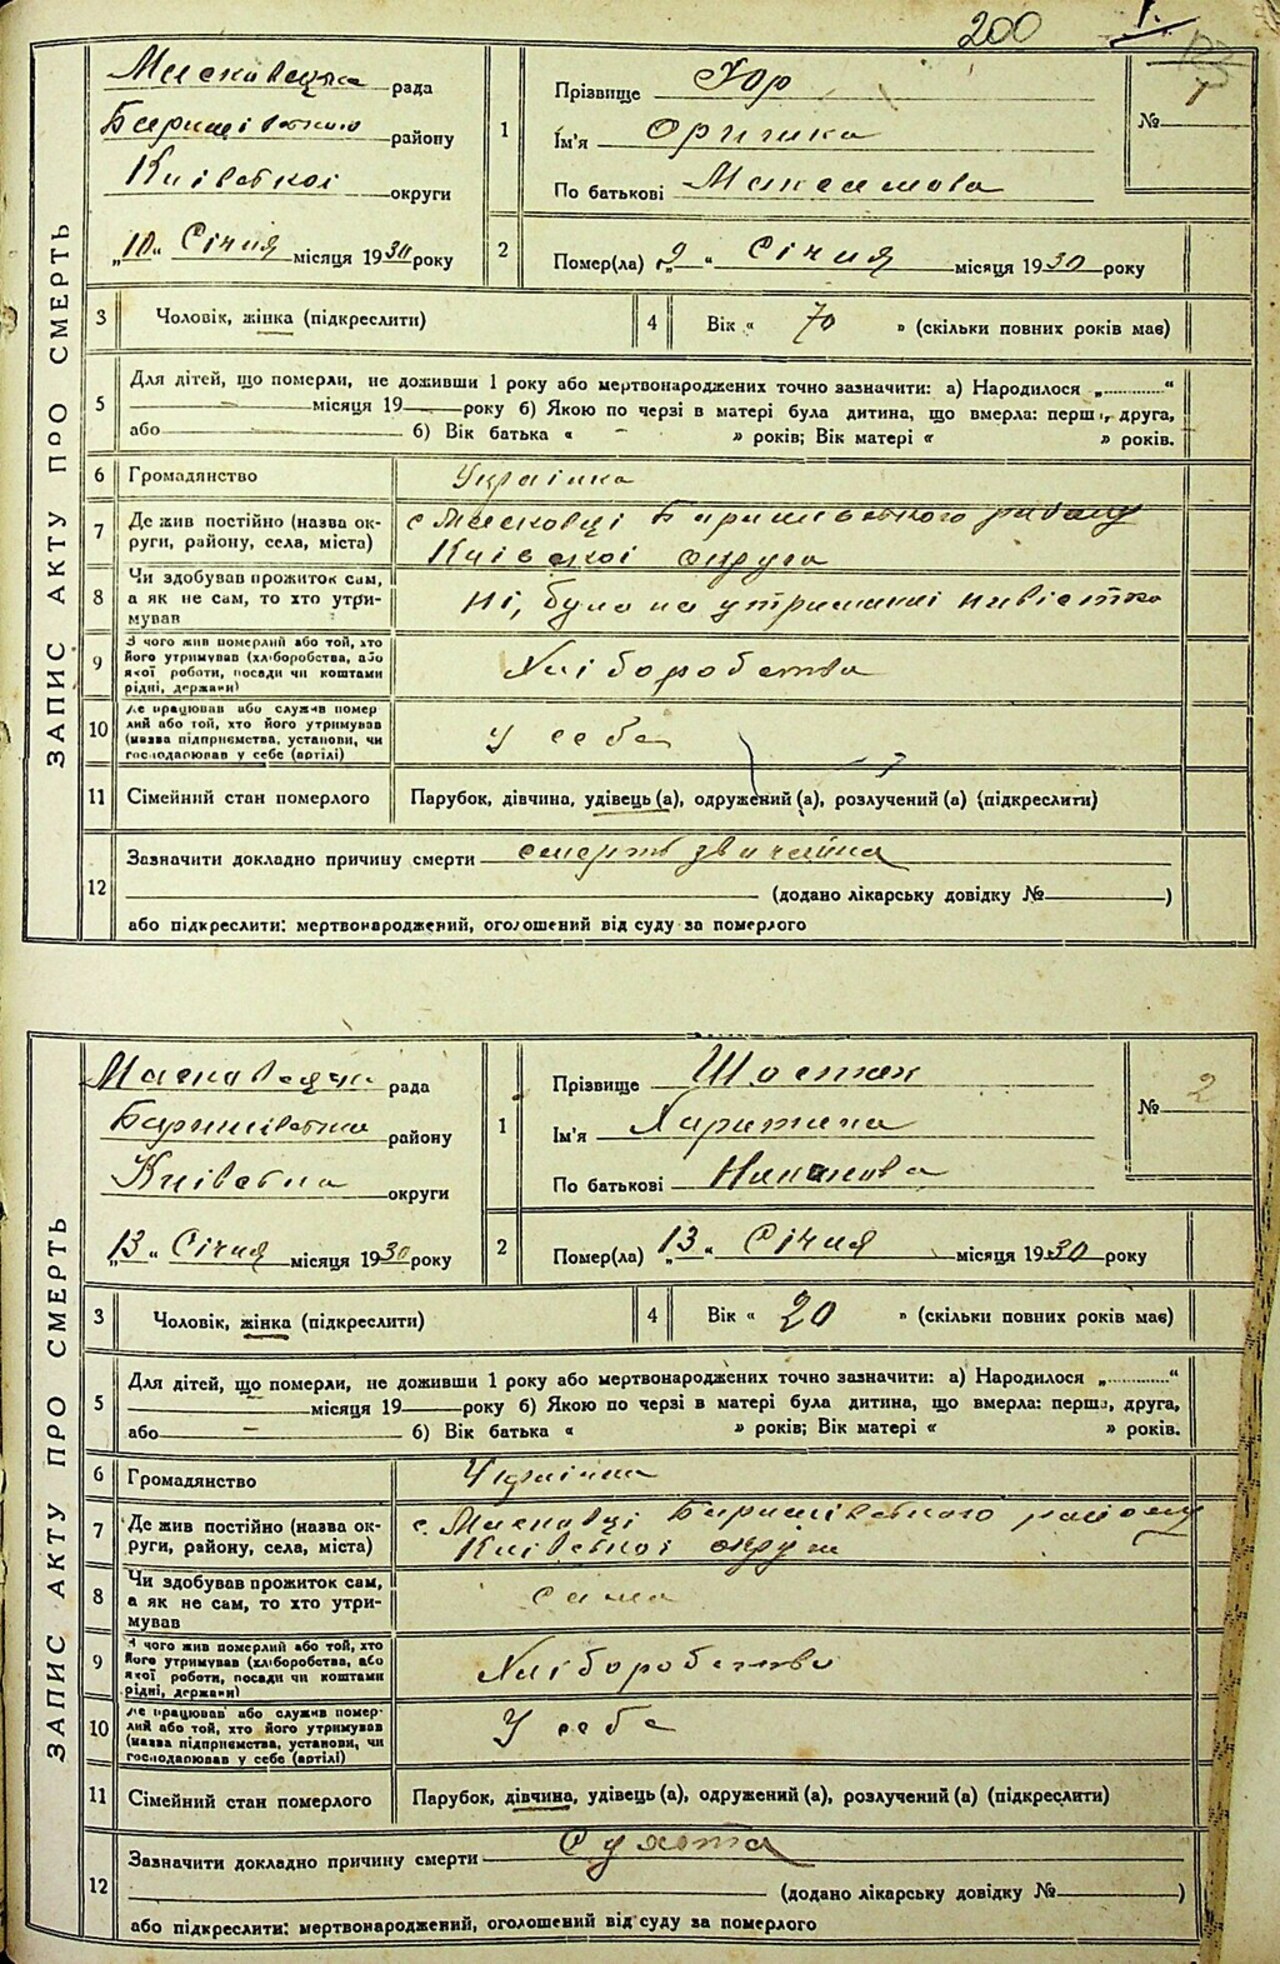 200
1.
ЗАПИС АКТУ ПРО СМЕРТЬ
Масковецька рада
Баришівського району
Київської округи
„10“ Січня місяця 1930 року
1
Прізвище Юр
Ім'я Оришка
По батькові Максимова
№ 1
2
Помер(ла) „9“ Січня місяця 1930 року
3 Чоловік, жінка (підкреслити)
4 Вік « 70 » (скільки повних років має)
5
Для дітей, що померли, не доживши 1 року або мертвонароджених точно зазначити: а) Народилося „..........“
місяця 19 року б) Якою по черзі в матері була дитина, що вмерла: перша, друга,
або б) Вік батька « - » років; Вік матері « » років.
6 Громадянство Українка
7 Де жив постійно (назва округи, району, села, міста) с Масковці Баришівського району
Київскої округа
8 Чи здобував прожиток сам, а як не сам, то хто утримував Ні, була на утриманні невістка
9 З чого жив померлий або той, хто його утримував (хліборобства, або якої роботи, посади чи коштами рідні, держави) Хліборобства
10 Де працював або служив помер лий або той, хто його утримував (назва підприємства, установи, чи господарював у себе (артілі) У себе
11 Сімейний стан померлого Парубок, дівчина, удівець (а), одружений (а), розлучений (а) (підкреслити)
12
Зазначити докладно причину смерти смерть звичайна
(додано лікарську довідку № )
або підкреслити: мертвонароджений, оголошений від суду за померлого
ЗАПИС АКТУ ПРО СМЕРТЬ
Масковецька рада
Баришівська району
Київська округи
„13“ Січня місяця 1930 року
1
Прізвище Шостак
Ім'я Харитина
По батькові
№ 2
2
Помер(ла) „13“ Січня місяця 1930 року
3 Чоловік, жінка (підкреслити)
4 Вік « 20 » (скільки повних років має)
5
Для дітей, що померли, не доживши 1 року або мертвонароджених точно зазначити: а) Народилося „..........“
місяця 19 року б) Якою по черзі в матері була дитина, що вмерла: перша, друга,
або б) Вік батька « » років; Вік матері « » років.
6 Громадянство Українка
7 Де жив постійно (назва округи, району, села, міста) с. Масковці Баришівського району
Київської округи
8 Чи здобував прожиток сам, а як не сам, то хто утримував сама
9 З чого жив померлий або той, хто його утримував (хліборобства, або якої роботи, посади чи коштами рідні, держави) Хліборобство
10 Де працював або служив померлий або той, хто його утримував (назва підприємства, установи, чи господарював у себе (артілі) У себе
11 Сімейний стан померлого Парубок, дівчина, удівець (а), одружений (а), розлучений (а) (підкреслити)
12
Зазначити докладно причину смерти Сухота
(додано лікарську довідку № )
або підкреслити: мертвонароджений, оголошений від суду за померлого